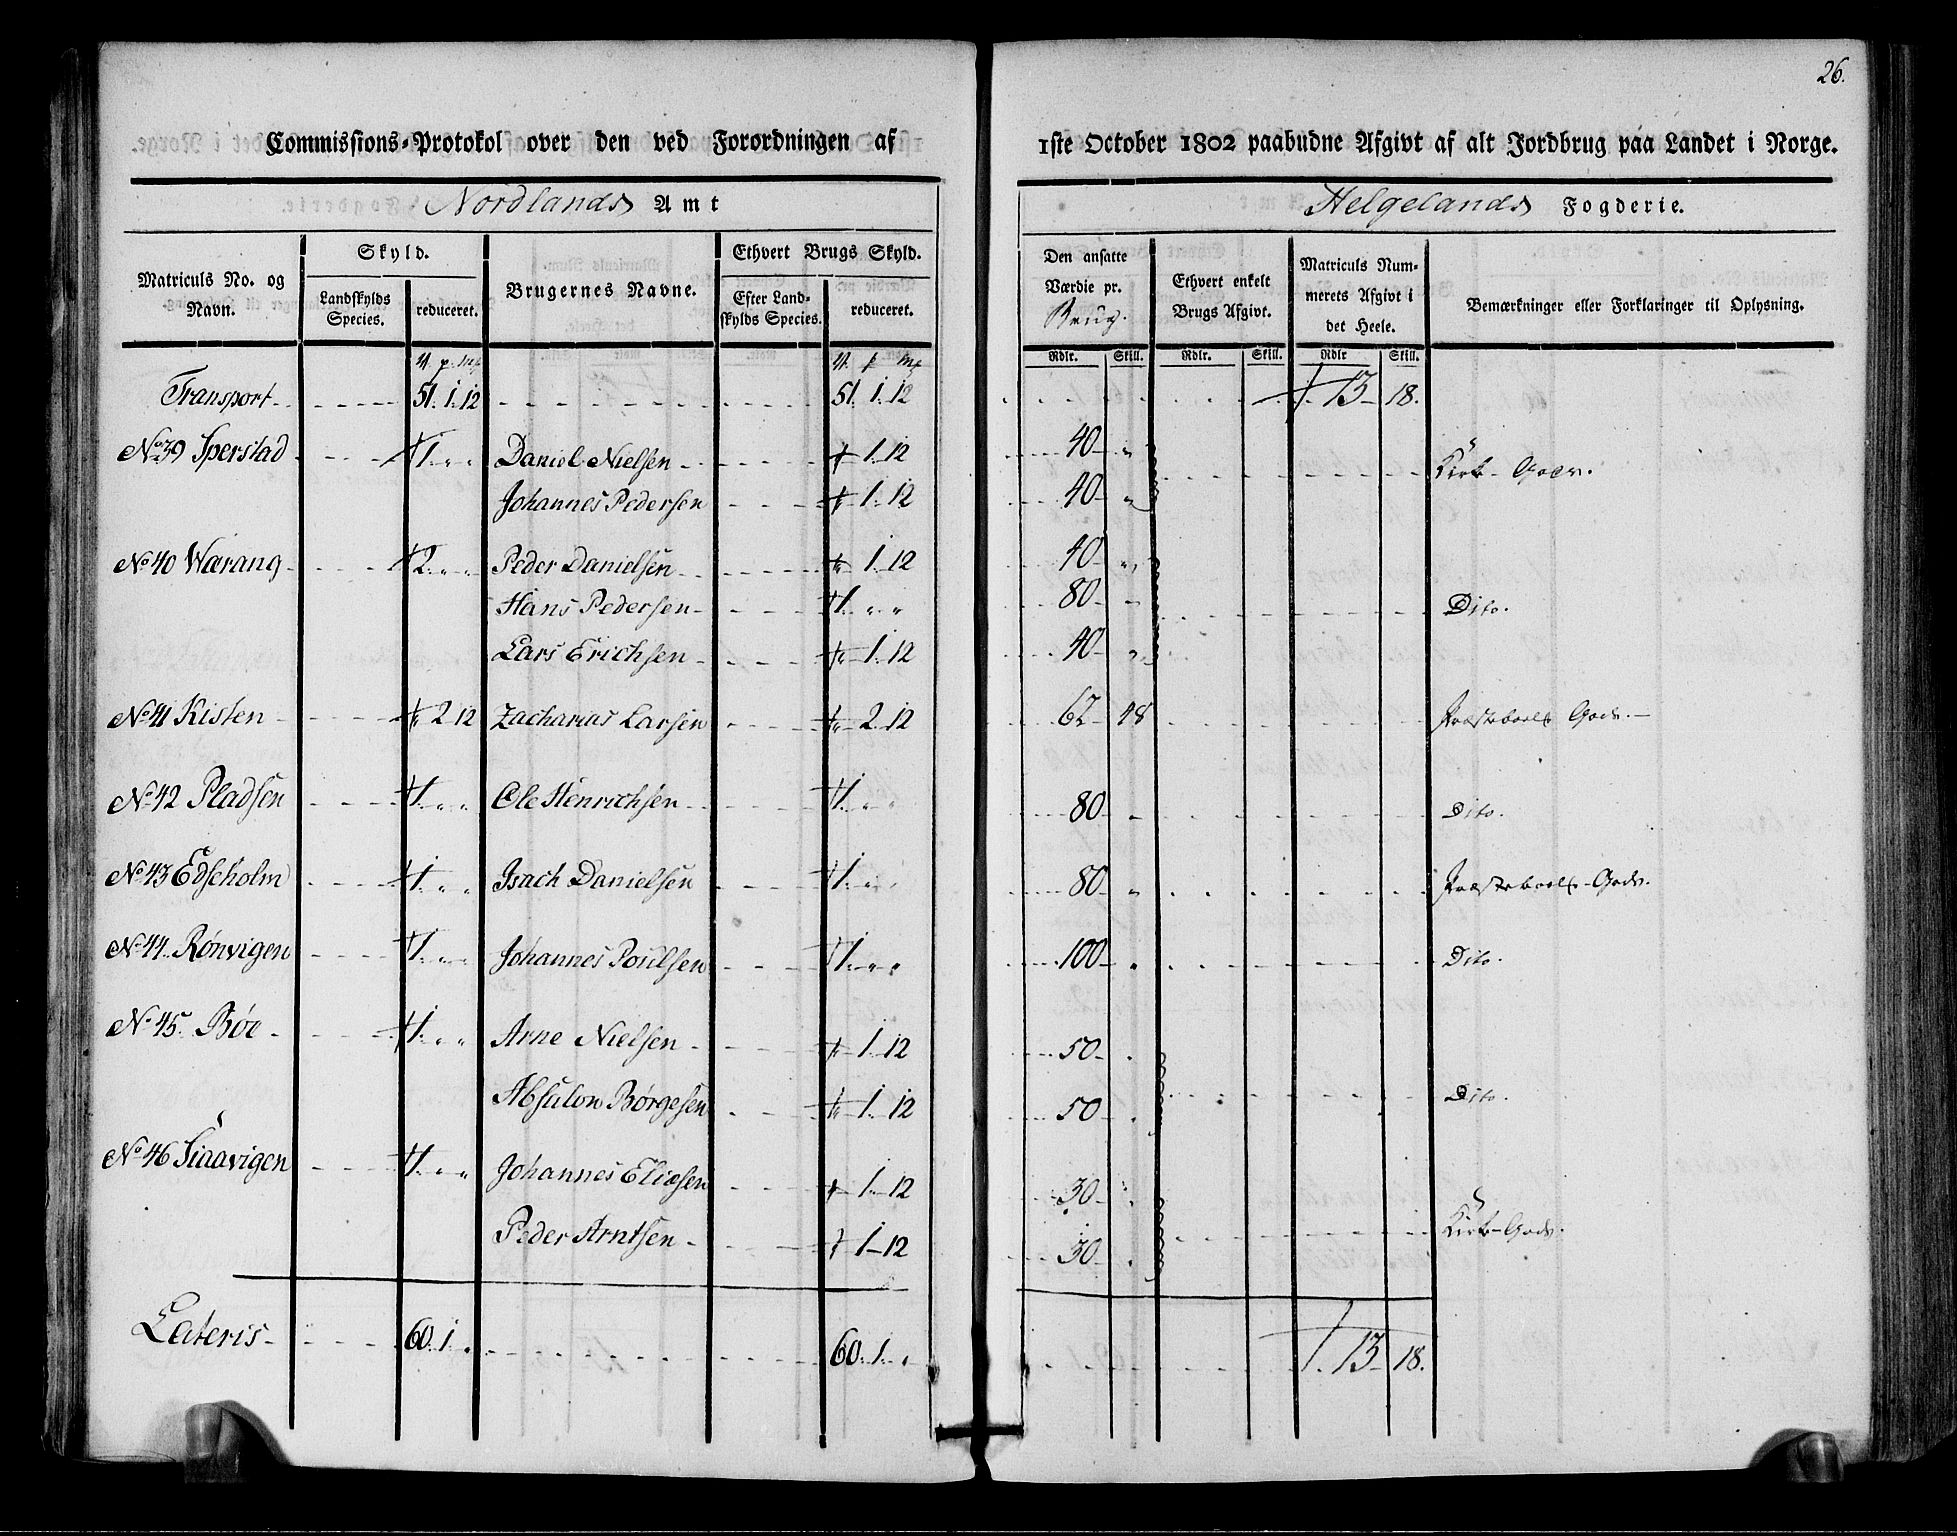 26.
Commissions-Protokol over den ved Forordningen af 1ste October 1802 paabudne Afgivt af alt Jordbrug paa Landet i Norge.
Nordlands Amt
Helgelands Fogderie.
Matriculs No. og Navn.
Skyld.
Landskylds Species.
reduceret.
Brugernes Navne.
Ethvert Brugs Skyld.
Efter Landskylds Species.
reduceret.
Den ansatte Værdie pr. Brug.
Ethvert enkelt Brugs Afgivt.
Matriculs Nummerets Afgivt i det Heele.
Bemærkninger eller Forklaringer til Oplysning.
Rdlr. Skill. Rdlr. Skill. Rdlr Skill.
Transport 51. 1. 12 51. 1. 12 13 18.
No 39 Sperstad 1. „ „ Daniel Nielsen 1. 12 40 „ Kirke-Gods.
Johannes Pedersen 1. 12 40 „
No 40 Wærang 2. „ „ Peder Danielsen 1. 12 40 „
Hans Pedersen 1. „ „ 80 „ Dito.
Lars Erichsen 1. 12 40 „
No 41 Kisten „ 2 12 Zacharias Larsen „ 2. 12 62 48 Præsteboels Gods.
No 42 Pladsen 1. „ „ Ole Henrichsen 1. „ „ 80 „ Dito.
No 43 Edseholm 1. „ „ Isach Danielsen 1. „ „ 80 „ Præsteboels-Gods.
No 44 Rönvigen 1. „ „ Johannes Poulsen 1. „ „ 100 „ Dito.
No 45. Bøe 1. „ „ Arne Nielsen 1. 12 50 „
Absalon Børgesen 1. 12 50 „ Dito.
No 46 Siaavigen 1. „ „ Johannes Eliæsen 1. 12 30 „
Peder Arntsen 1. 12 30 „ Kirke-Gods.
Lateris 60. 1. „ 60. 1. „ 13 18.